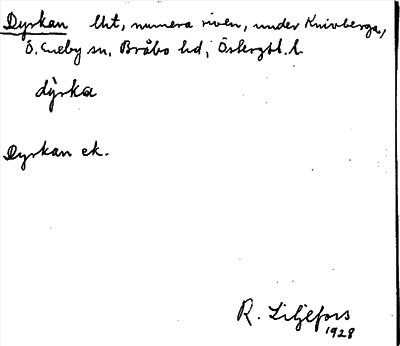 Dyrkan lht, numera riven, under Knivberga,
Ö. Eneby sn, Bråbo hd, Östergötl. l.
dỳrka
Dyrkan ek.
R. Liljefors
1928